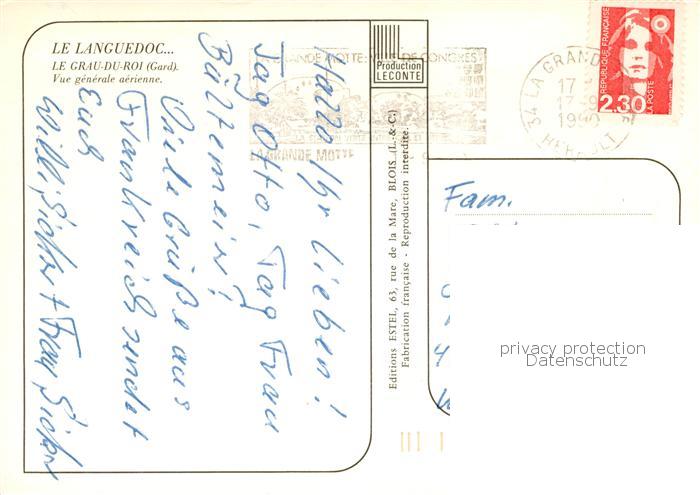 LE LANGUEDOC...
LE GRAU-DU-ROI (Gard).
Vue générale aérienne.
Hallo Ihr lieben!
Tag Otto, Tag Frau
Bültemeir!
Viele Grüße aus
Frankreich sendet
Euch
Willi,
+ Frau
LA GRANDE MOTTE: VILLE DE CONGRES
LA GRANDE MOTTE
Production
LECONTE
Editions ESTEL, 63, rue de la Mare, BLOIS (L.-&-C.)
Fabrication française - Reproduction interdite.
34 LA GRANDE
17
17-9
1990
HERAULT
REPUBLIQUE FRANÇAISE
2,30
LA POSTE
Fam.
privacy protection
Datenschutz